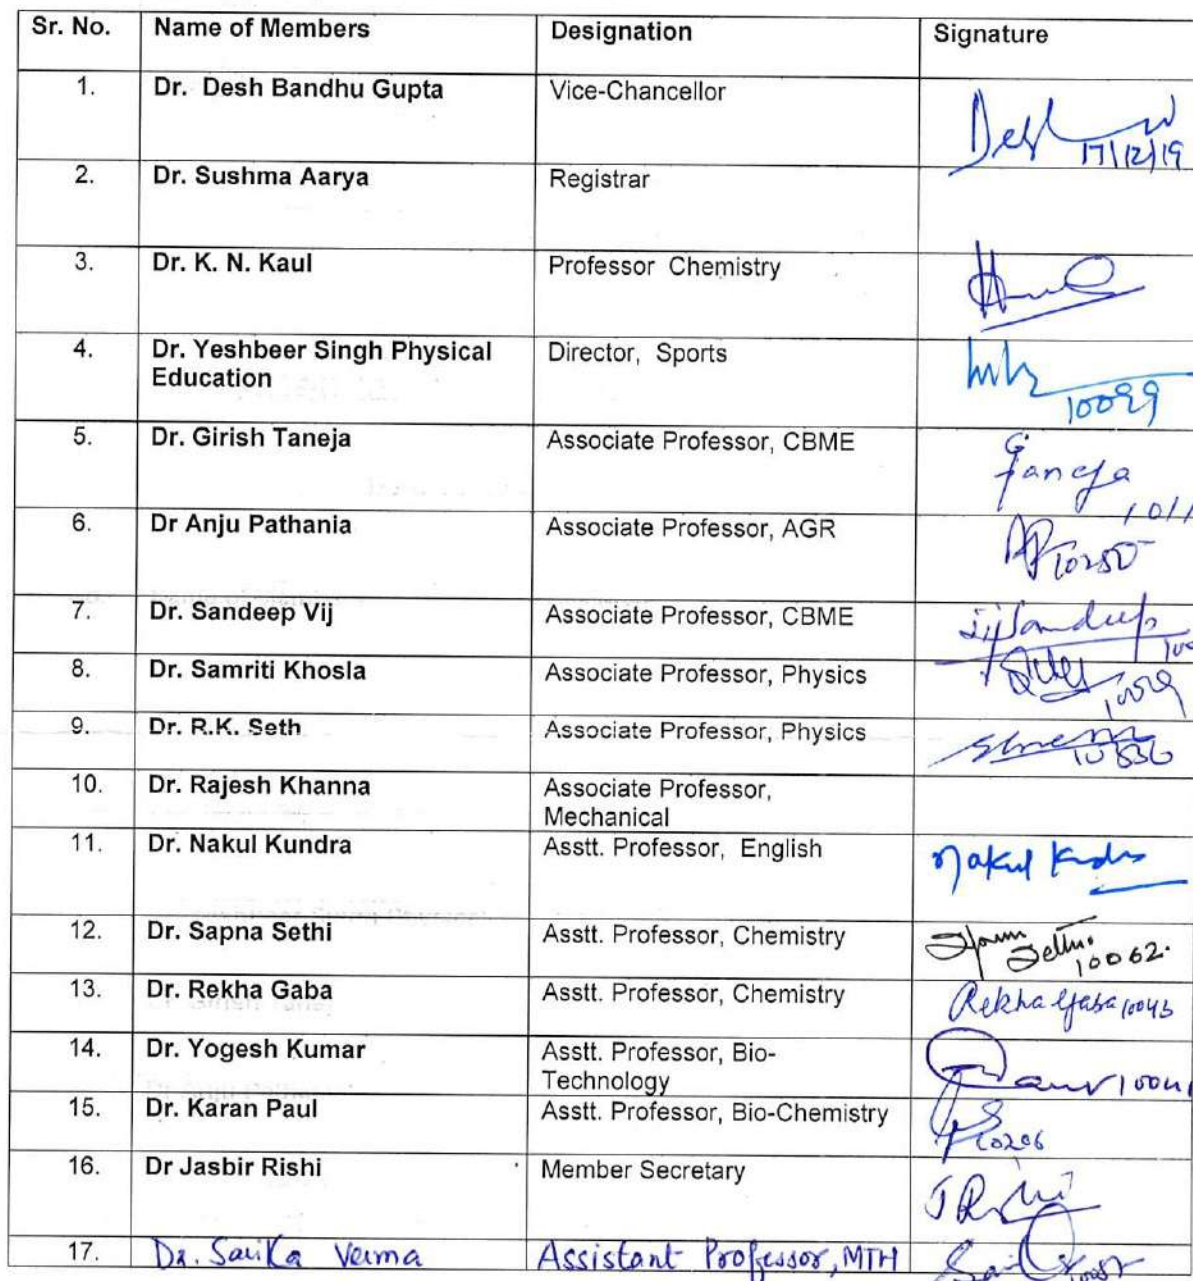 Sr. No. Name of Members Designation Signature
1. Dr. Desh Bandhu Gupta Vice-Chancellor
17/12/19
2. Dr. Sushma Aarya Registrar
3. Dr. K. N. Kaul Professor Chemistry
4. Dr. Yeshbeer Singh Physical Director, Sports
Education
10099
5. Dr. Girish Taneja Associate Professor, CBME
6. Dr Anju Pathania Associate Professor, AGR
7. Dr. Sandeep Vij Associate Professor, CBME
8. Dr. Samriti Khosla Associate Professor, Physics
9. Dr. R.K. Seth Associate Professor, Physics
10. Dr. Rajesh Khanna Associate Professor,
Mechanical
11. Dr. Nakul Kundra Asstt. Professor, English Nakul
12. Dr. Sapna Sethi Asstt. Professor, Chemistry
10062.
13. Dr. Rekha Gaba Asstt. Professor, Chemistry Rekha Gaba 10043
14. Dr. Yogesh Kumar Asstt. Professor, Bio-
Technology
15. Dr. Karan Paul Asstt. Professor, Bio-Chemistry
10206
16. Dr Jasbir Rishi Member Secretary
17. Dr. Sarika Verma Assistant Professor, MTH